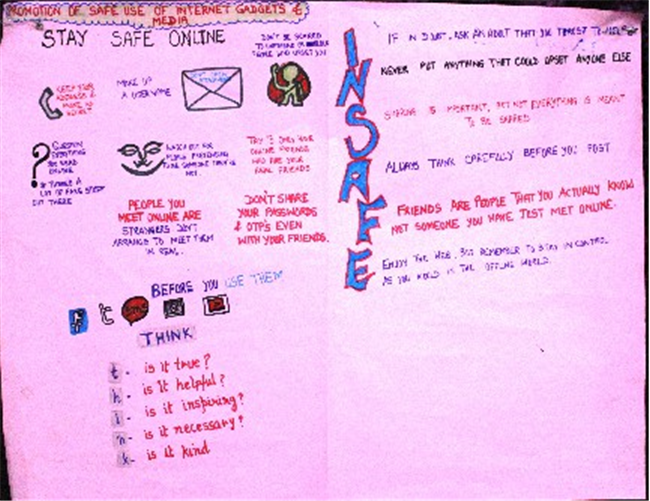 PROMOTION OF SAFE USE OF INTERNET GADGETS &
MEDIA
STAY SAFE ONLINE
DON'T BE SCARED
PEOPLE WHO UPSET YOU
KEEP YOUR
ADDRESS &
MAKE UP
A USERNAME
QUESTION
EVERYTHING
YOU READ
ONLINE
LOT OF FAKE STUFF
OUT THERE
WATCH OUT FOR
PEOPLE PRETENDING
TO BE SOMEONE THEY'RE
NOT.
TRY & ONLY HAVE
ONLINE FRIENDS
WHO ARE YOUR
REAL FRIENDS
PEOPLE YOU
MEET ONLINE ARE
STRANGERS DON'T
ARRANGE TO MEET THEM
IN REAL.
DON'T SHARE
YOUR PASSWORDS
& OTP'S EVEN
WITH YOUR FRIENDS.
BEFORE YOU USE THEM
THINK
t - is it true?
h - is it helpful?
i - is it inspiring?
n - is it necessary?
k - is it kind
INSAFE
IF IN DOUBT, ASK AN ADULT THAT YOU TRUST TO HELP
NEVER PUT ANYTHING THAT COULD UPSET ANYONE ELSE
SHARING IS IMPORTANT, BUT NOT EVERYTHING IS MEANT
TO BE SHARED
ALWAYS THINK CAREFULLY BEFORE YOU POST
FRIENDS ARE PEOPLE THAT YOU ACTUALLY KNOW
NOT SOMEONE YOU HAVE JEST MET ONLINE.
ENJOY THE WEB, BUT REMEMBER TO STAY IN CONTROL
AS YOU WOULD IN THE OFFLINE WORLD.